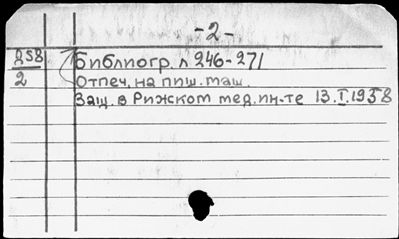 -2-
258
2
Библиогр. л 246-271
Отпеч. на пиш. маш.
Защ. в Рижском мед. ин-те 13.I.1958